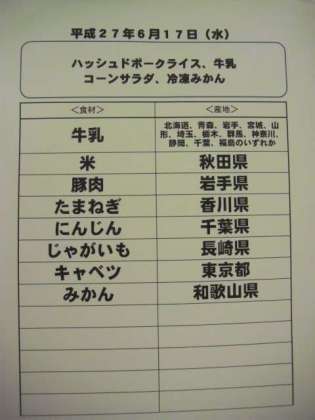 平成27年6月17日（水）
ハッシュドポークライス、牛乳
コーンサラダ、冷凍みかん
＜食材＞ ＜産地＞
牛乳 北海道、青森、岩手、宮城、山
形、埼玉、栃木、群馬、神奈川、
静岡、千葉、福島のいずれか
米 秋田県
豚肉 岩手県
たまねぎ 香川県
にんじん 千葉県
じゃがいも 長崎県
キャベツ 東京都
みかん 和歌山県